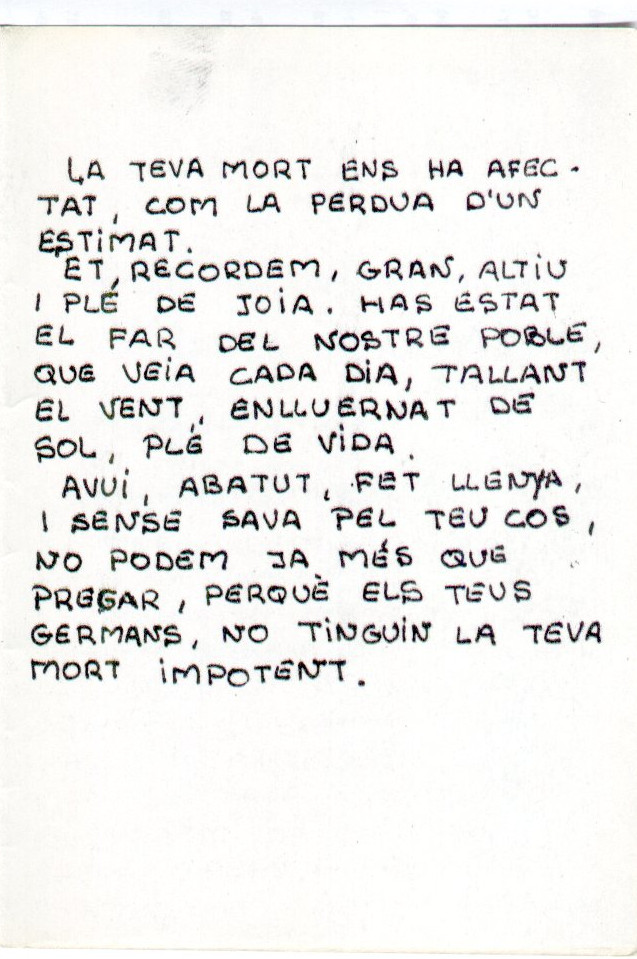 LA TEVA MORT ENS HA AFEC-
TAT, COM LA PERDUA D'UN
ESTIMAT.
ET, RECORDEM, GRAN, ALTIU
I PLÉ DE JOIA. HAS ESTAT
EL FAR DEL NOSTRE POBLE,
QUE VEIA CADA DIA, TALLANT
EL VENT, ENLLUERNAT DE
SOL, PLÉ DE VIDA.
AVUI, ABATUT, FET LLENYA,
I SENSE SAVA PEL TEU COS,
NO PODEM JA MÉS QUE
PREGAR, PERQUÈ ELS TEUS
GERMANS, NO TINGUIN LA TEVA
MORT IMPOTENT.